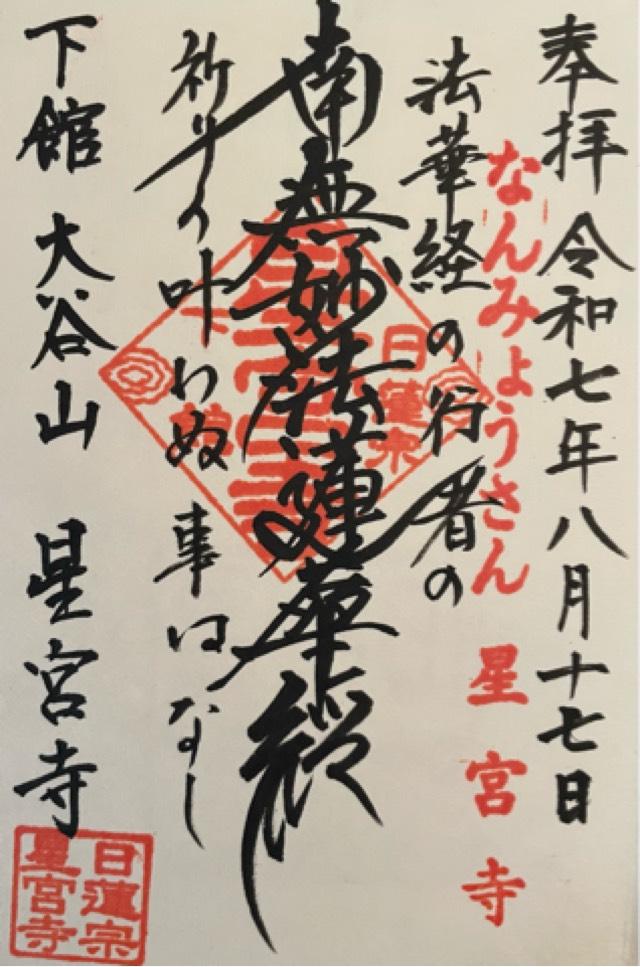 奉拝 令和七年八月十七日
なんみょうさん 星宮寺
法華経の行者の
南無妙法蓮華経
日蓮宗
祈りの叶わぬ事はなし
下館 大谷山 星宮寺
日蓮宗
星宮寺